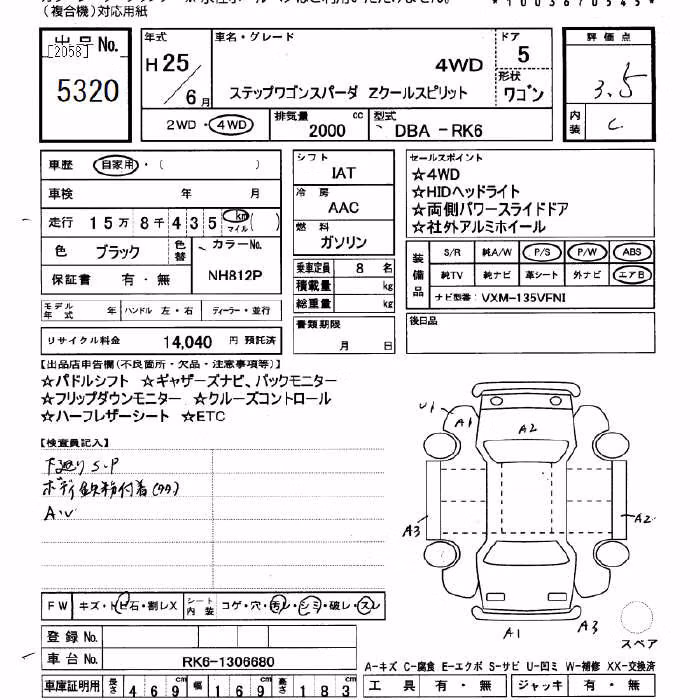 （複合機）対応用紙
出品No.
[2058]
5320
年式
H25／6月
車名・グレード
4WD
ステップワゴンスパーダ Zクールスピリット
ドア
5
形状
ワゴン
2WD・4WD
排気量
2000 cc
型式
DBA-RK6
評価点
3.5
内装
C
車歴 自家用・( )
車検 年 月
走行 15万8千435 km マイル ( )
色 ブラック 色替
カラーNo.
NH812P
保証書 有・無
モデル年式 年 ハンドル 左・右 ディーラー・並行
リサイクル料金 14,040 円 預託済
シフト
IAT
冷房
AAC
燃料
ガソリン
乗車定員 8 名
積載量 kg
総重量 kg
書類期限
月 日
セールスポイント
☆4WD
☆HIDヘッドライト
☆両側パワースライドドア
☆社外アルミホイール
装備品
S/R 純A/W P/S P/W ABS
純TV 純ナビ 革シート 外ナビ エアB
ナビ型番: VXM-135VFNI
後日品
【出品店申告欄(不良箇所・欠品・注意事項等)】
☆パドルシフト ☆ギャザーズナビ、バックモニター
☆フリップダウンモニター ☆クルーズコントロール
☆ハーフレザーシート ☆ETC
【検査員記入】
下廻りS.P
ボディ鉄粉付着(タタ)
A.W
U1
A1
A2
A3
A2
A1
A3
スペア
FW キズ・トビ石・割レX
シート内装 コゲ・穴・汚レ・シミ・破レ・スレ
登録No.
車台No. RK6-1306680
車庫証明用 長さ 469 幅 169 高さ 183
A-キズ C-腐食 E-エクボ S-サビ U-凹ミ W-補修 XX-交換済
工具 有・無 ジャッキ 有・無